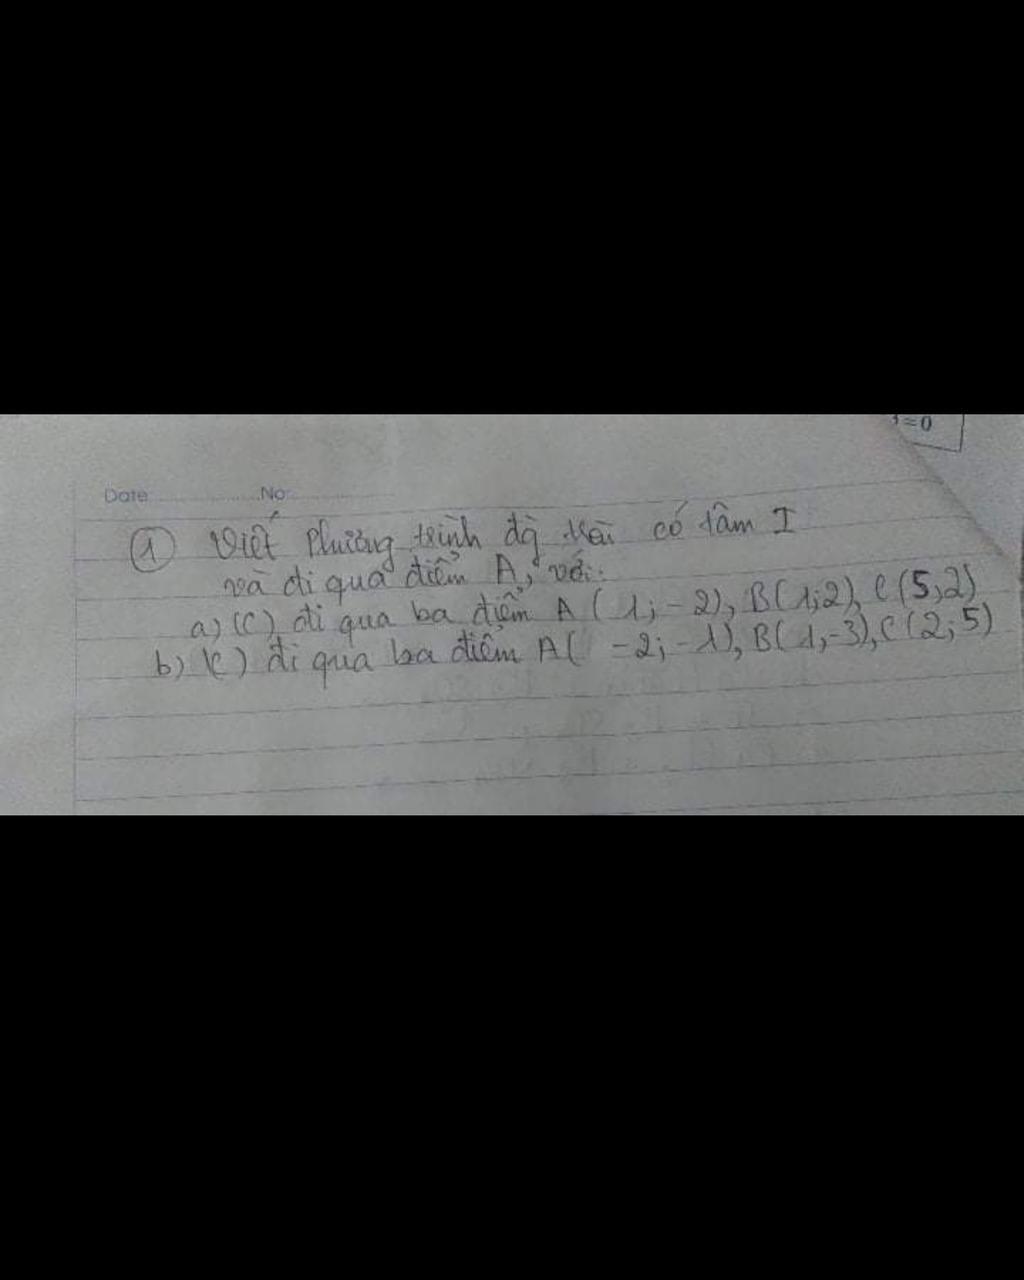 1=0
Date No
① Viết Phương trình đg tròn có tâm I
và đi qua điểm A, với:
a) (C) đi qua ba điểm A ( 1; -2), B(1;2), C(5,2)
b) (C) đi qua ba điểm A( -2; -1), B(1,-3), C(2;5)